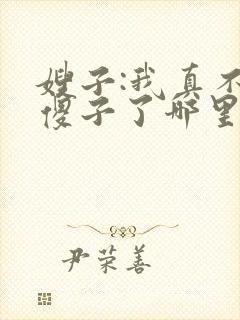 嫂子:我真不
傻子了哪里
尹荣善